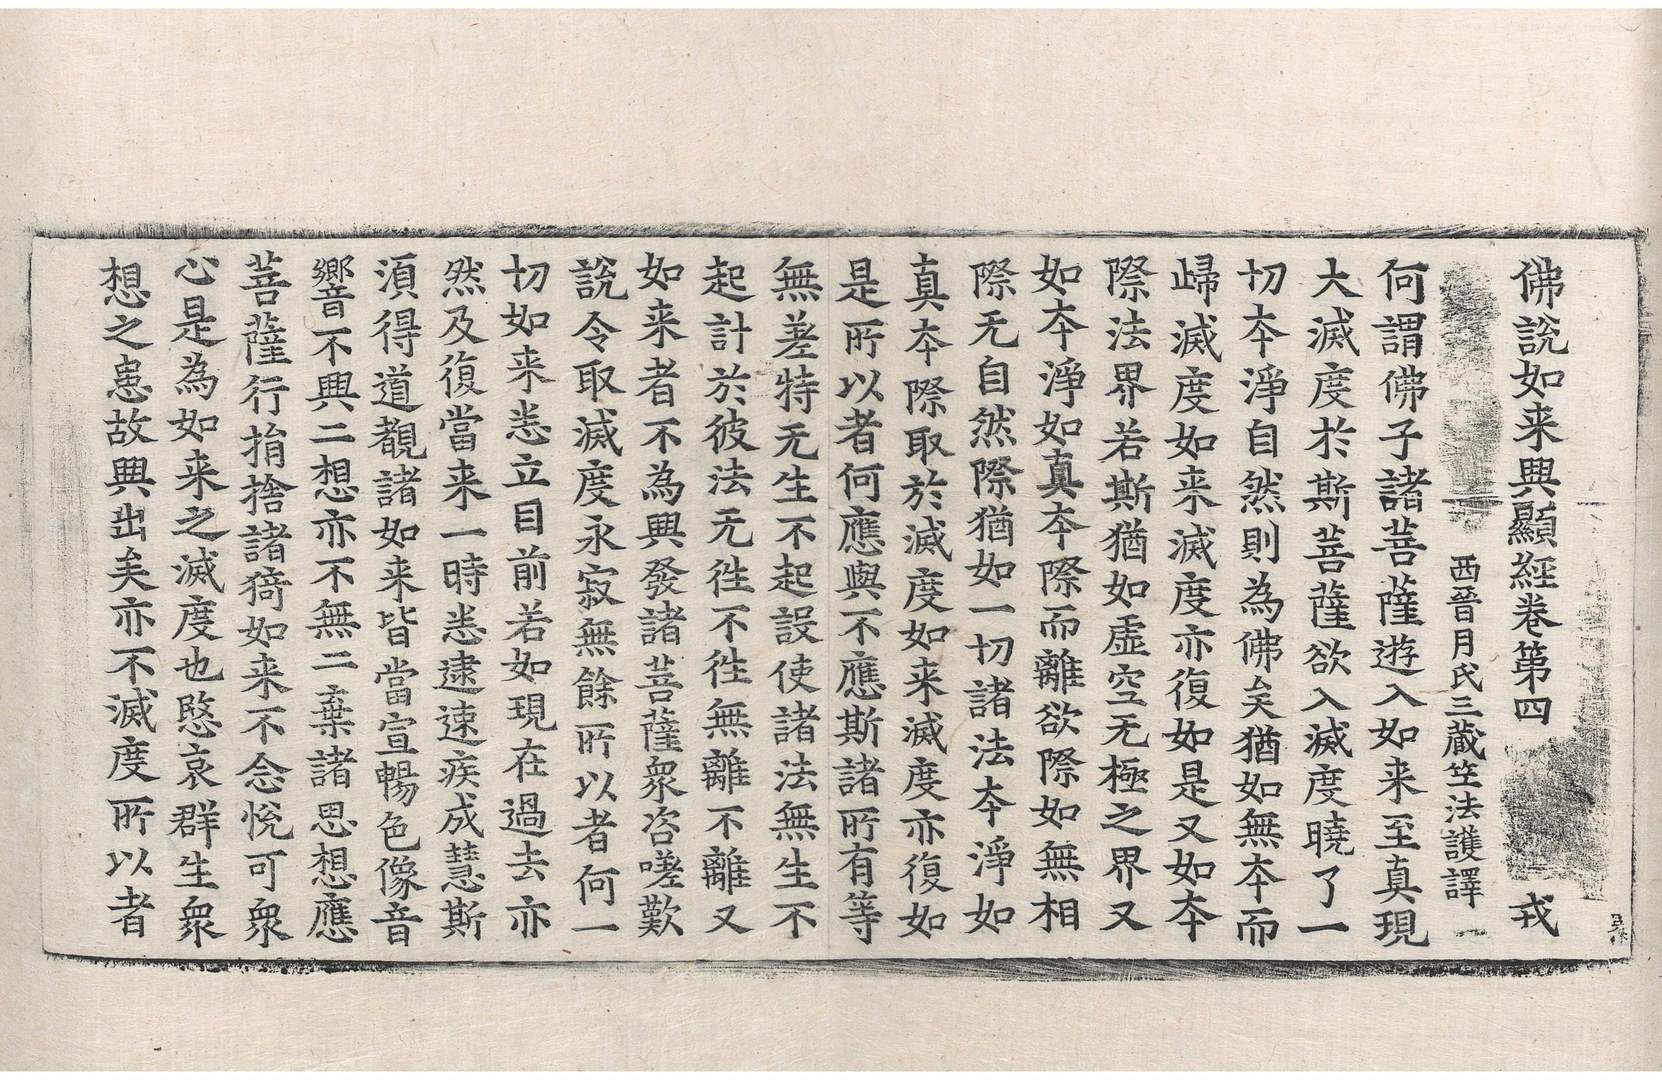 佛說如来興顯經卷第四 戎
西晉月氏三藏竺法護譯 一
何謂佛子諸菩薩遊入如来至真現
大滅度於斯菩薩欲入滅度曉了一
切夲淨自然則為佛矣猶如無夲而
歸滅度如来滅度亦復如是又如夲
際法界若斯猶如虛空无極之界又
如夲淨如真夲際而離欲際如無相
際无自然際猶如一切諸法夲淨如
真夲際取於滅度如来滅度亦復如
是所以者何應與不應斯諸所有等
無差特无生不起設使諸法無生不
起計於彼法无徃不徃無離不離又
如来者不為興發諸菩薩衆咨嗟歎
說令取滅度永寂無餘所以者何一
切如来悉立目前若如現在過去亦
然及復當来一時悉逮速疾成慧斯
湏得道覩諸如来皆當宣暢色像音
響不興二想亦不無二棄諸思想應
菩薩行捎捨諸猗如来不念悅可衆
心是為如来之滅度也愍哀群生衆
想之患故興出矣亦不滅度所以者